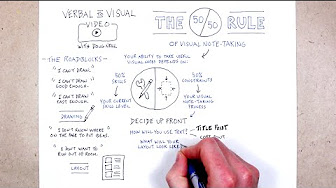 VERBAL TO VISUAL
VIDEO
WITH DOUG NEILL
THE 50/50 RULE
OF VISUAL NOTE-TAKING
THE ROADBLOCKS
"I CAN'T DRAW."
"I CAN'T DRAW
GOOD ENOUGH."
"I CAN'T DRAW
FAST ENOUGH."
DRAWING
"I DON'T KNOW WHERE ON
THE PAGE TO PUT IDEAS."
"I DON'T WANT TO
RUN OUT OF ROOM."
LAYOUT
YOUR ABILITY TO TAKE USEFUL
VISUAL NOTES DEPENDS ON:
50%
SKILLS
YOUR CURRENT
SKILL LEVEL
50%
CONSTRAINTS
YOUR VISUAL
NOTE-TAKING
PROCESS
DECIDE UP FRONT
HOW WILL YOU USE TEXT?
TITLE FONT
CORE FONT
WHAT WILL YOUR
LAYOUT LOOK LIKE?